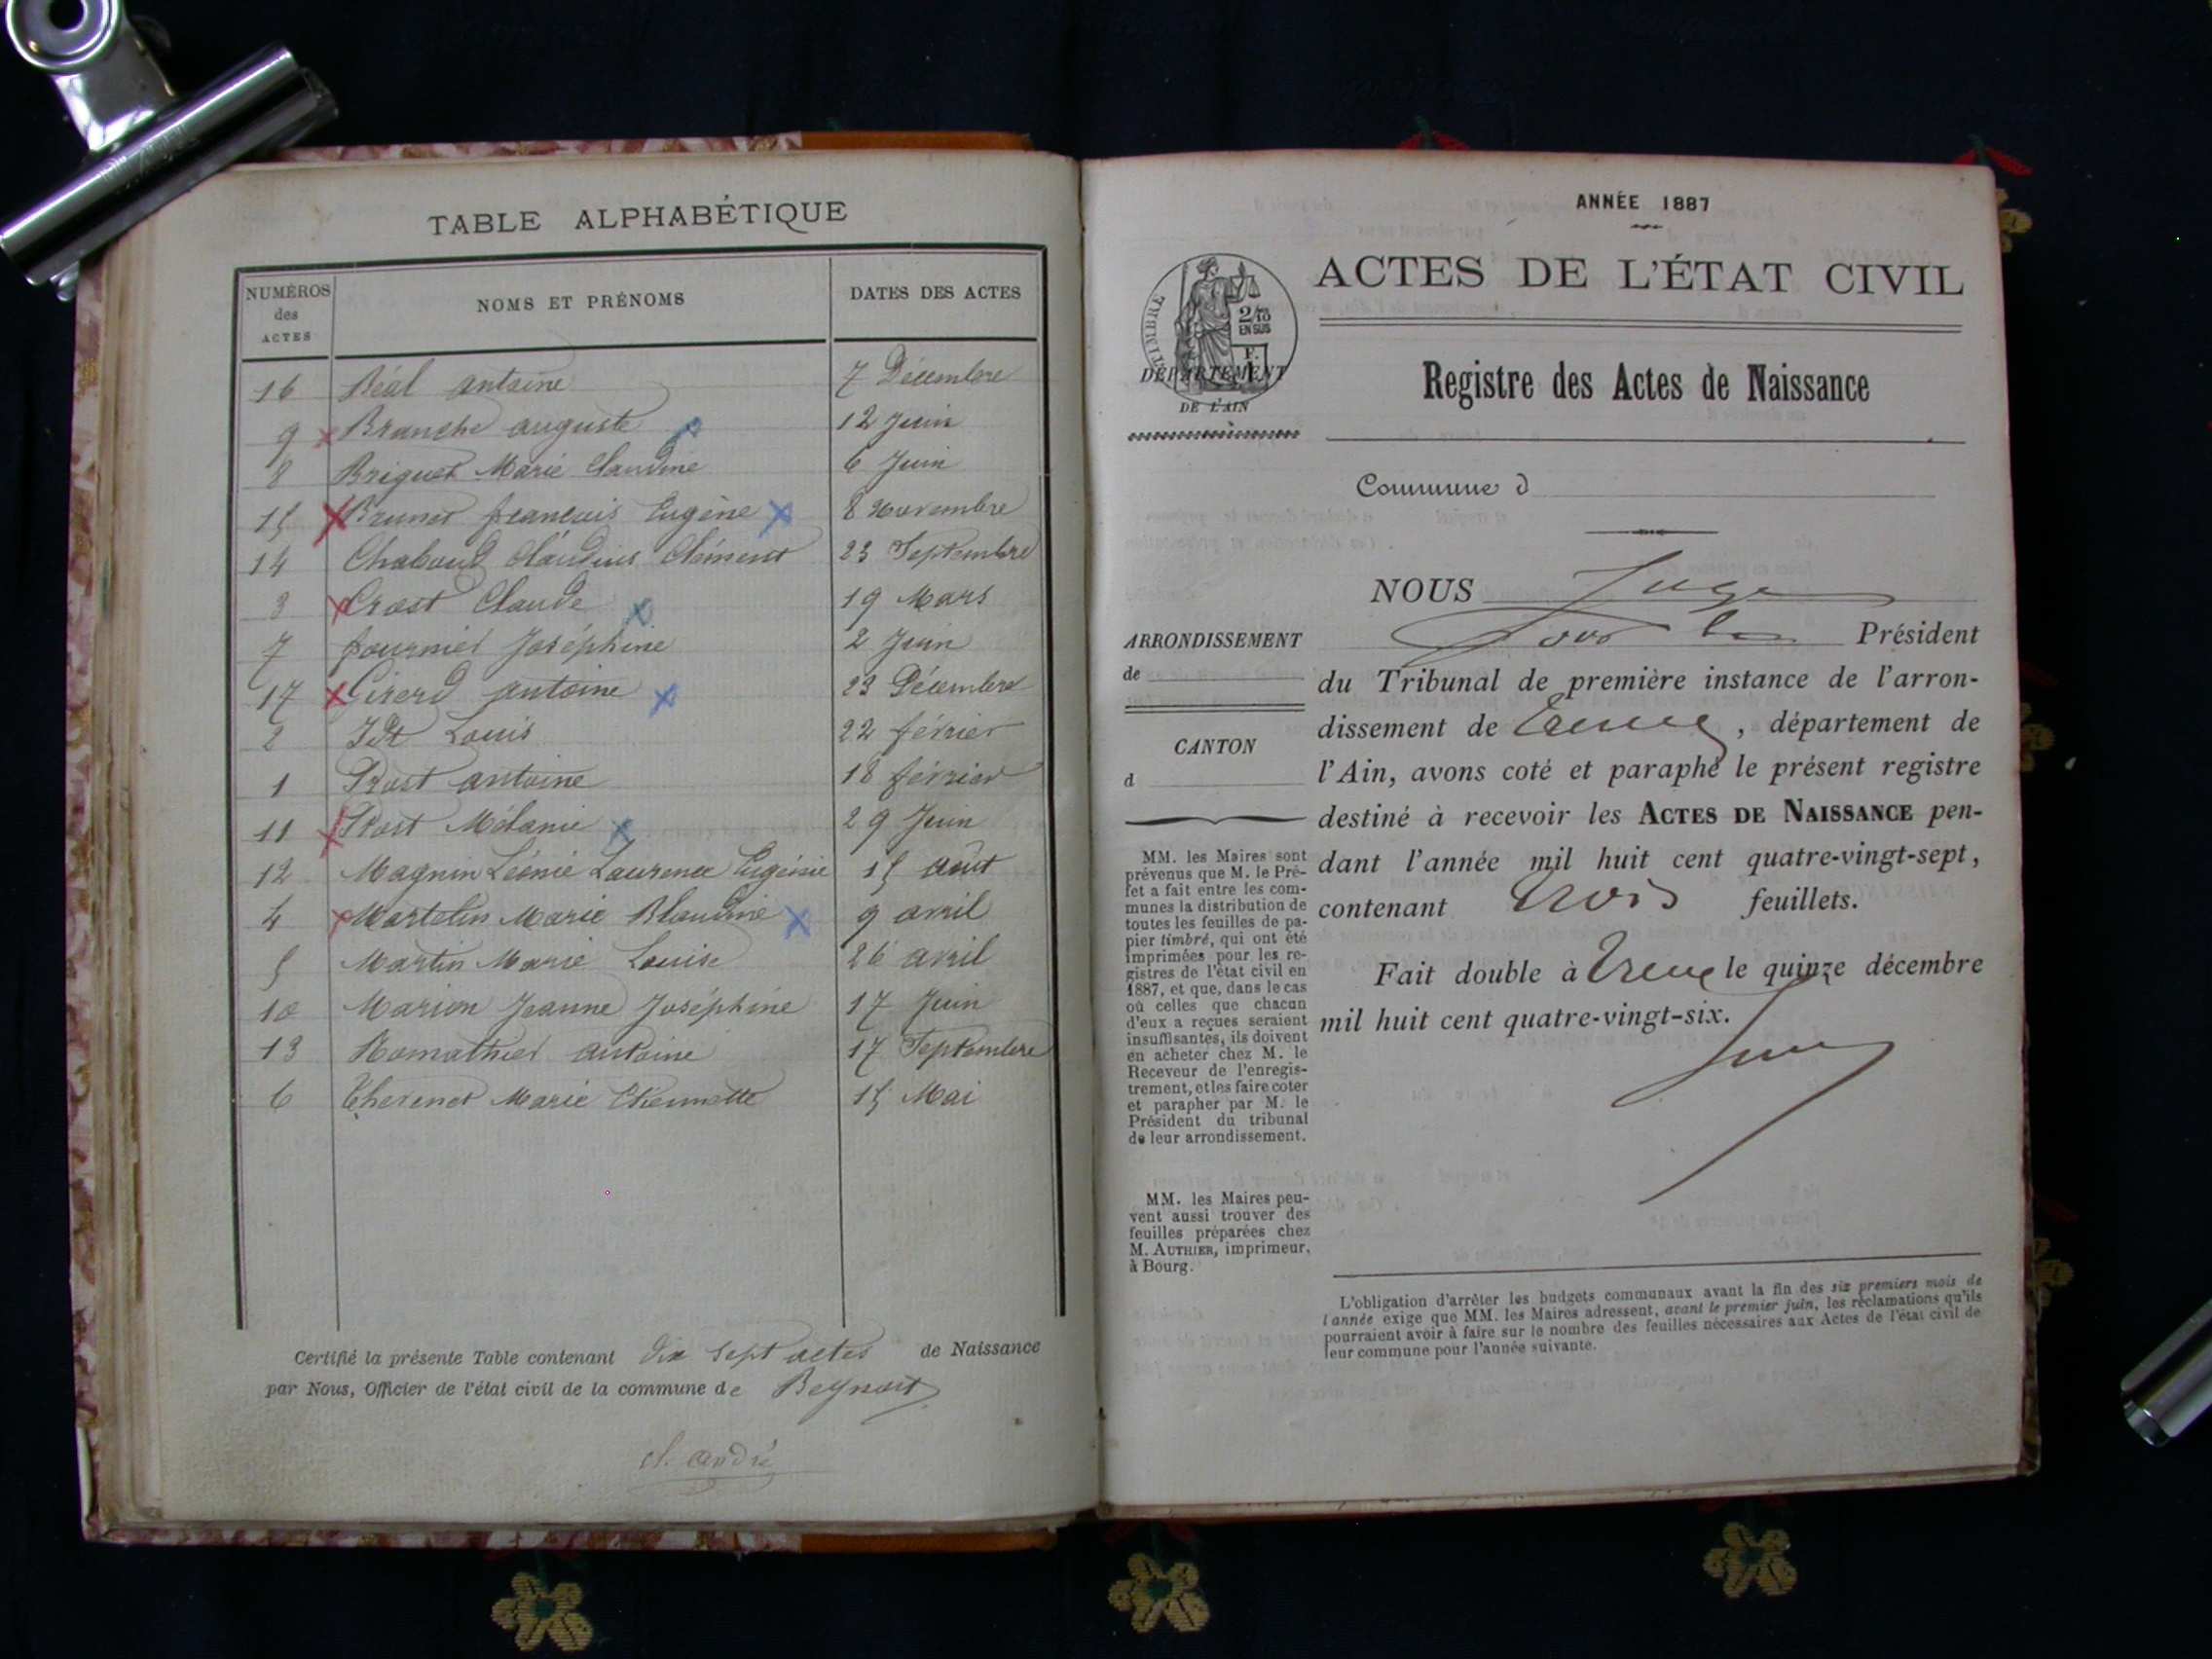 TABLE ALPHABÉTIQUE
NUMÉROS des ACTES NOMS ET PRÉNOMS DATES DES ACTES
16 Béal antoine 7 Décembre
9 Branche auguste 12 Juin
8 Briguet Marie Claudine 6 Juin
15 Brunet françois Eugène 8 Novembre
14 Chaboud Claudius Clément 23 Septembre
3 Crost Claude 19 Mars
7 fournier Joséphine 2 Juin
17 Girerd antoine 23 Décembre
2 Louis 22 février
1 Prost antoine 18 février
11 Prost Mélanie 29 Juin
12 Magnin Léonie Laurence Eugénie 15 août
4 Martelin Marie Blandine 9 avril
5 Martin Marie Louise 26 avril
10 Marion Jeanne Joséphine 17 Juin
13 Romathier antoine 17 Septembre
6 Thevenet Marie Etiennette 15 Mai
Certifié la présente Table contenant dix sept actes de Naissance
par Nous, Officier de l'état civil de la commune de Beynost
cl. andré
ANNÉE 1887
ACTES DE L'ÉTAT CIVIL
TIMBRE
2/10
EN SUS
F.
1
DÉPARTEMENT
DE L'AIN
Registre des Actes de Naissance
Commune d
NOUS Juge
Président
du Tribunal de première instance de l'arron-
dissement de Trevoux, département de
l'Ain, avons coté et paraphé le présent registre
destiné à recevoir les ACTES DE NAISSANCE pen-
dant l'année mil huit cent quatre-vingt-sept,
contenant trois feuillets.
Fait double à Trevoux le quinze décembre
mil huit cent quatre-vingt-six.
ARRONDISSEMENT
de
CANTON
d
MM. les Maires sont
prévenus que M. le Pré-
fet a fait entre les com-
munes la distribution de
toutes les feuilles de pa-
pier timbré, qui ont été
imprimées pour les re-
gistres de l'état civil en
1887, et que, dans le cas
où celles que chacun
d'eux a reçues seraient
insuffisantes, ils doivent
en acheter chez M. le
Receveur de l'enregis-
trement, et les faire coter
et parapher par M. le
Président du tribunal
de leur arrondissement.
MM. les Maires peu-
vent aussi trouver des
feuilles préparées chez
M. AUTHIER, imprimeur,
à Bourg.
L'obligation d'arrêter les budgets communaux avant la fin des six premiers mois de
l'année exige que MM. les Maires adressent, avant le premier juin, les réclamations qu'ils
pourraient avoir à faire sur le nombre des feuilles nécessaires aux Actes de l'état civil de
leur commune pour l'année suivante.